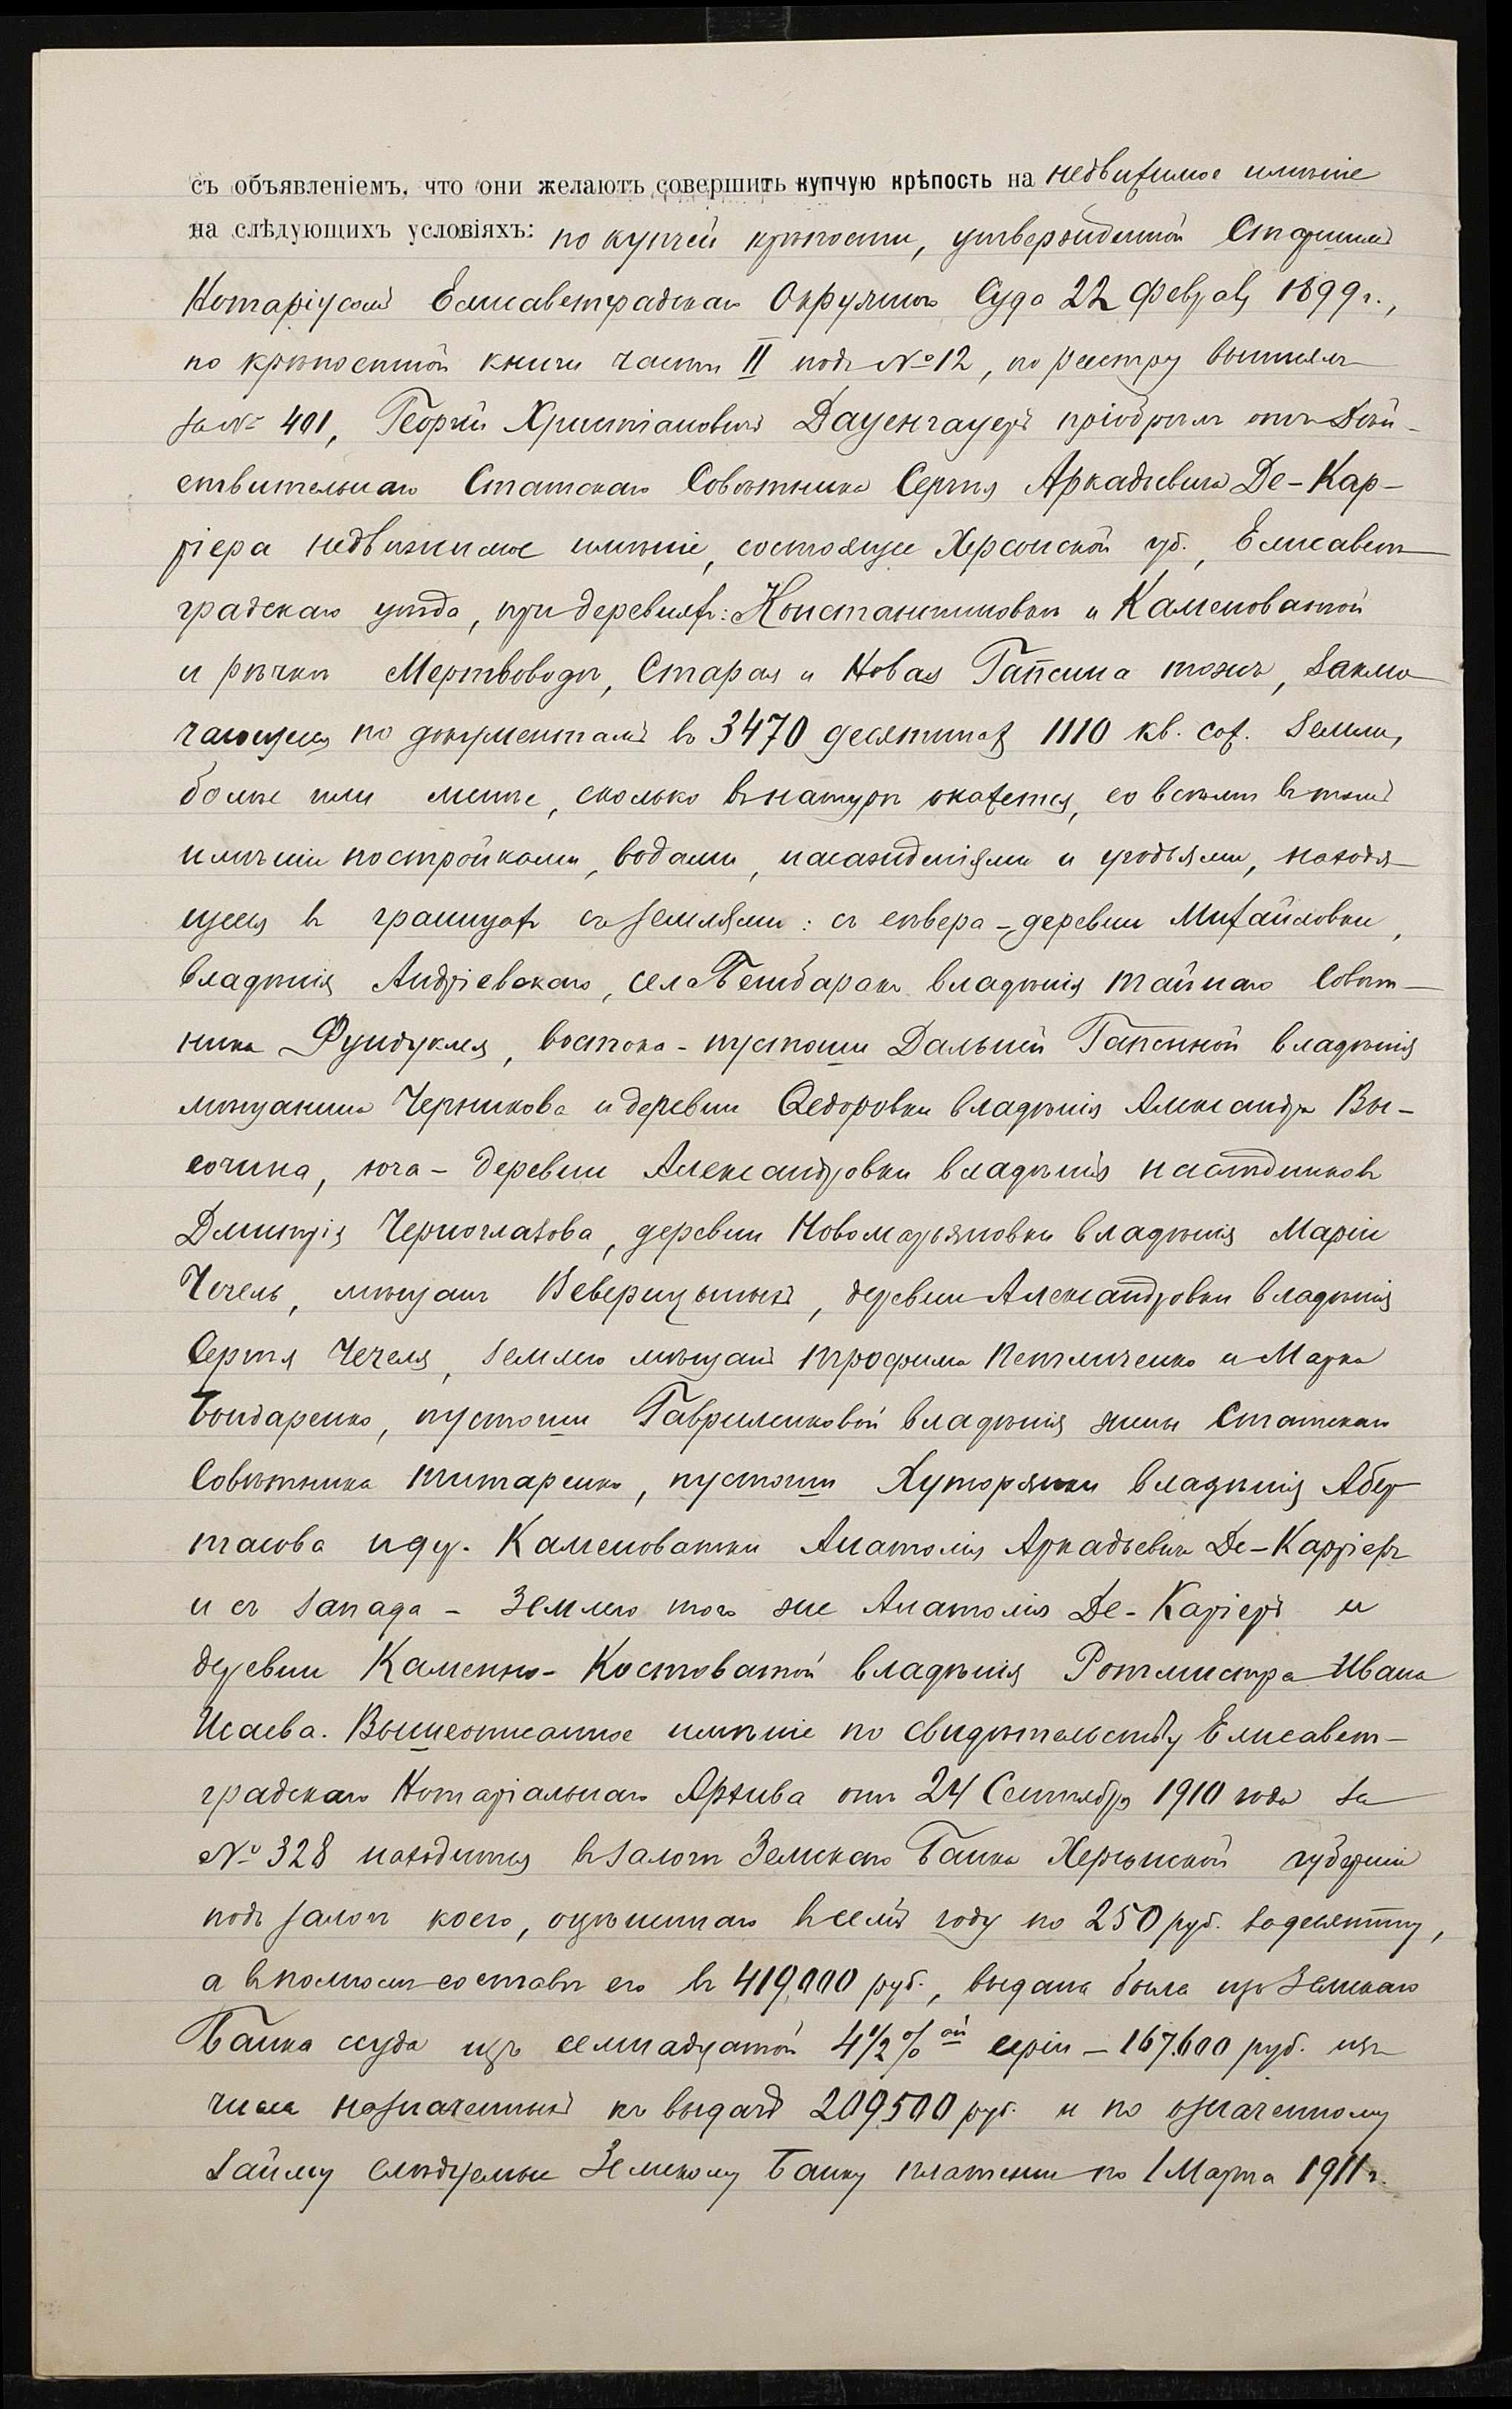 съ объявленіемъ, что они желаютъ совершить купчую крѣпость на недвижимое имѣніе
на слѣдующихъ условіяхъ: по купчей крѣпости, утвержденной Старшимъ
Нотаріусомъ Елисаветградскаго Окружнаго Суда 22 Февраля 1899 г.,
по крѣпостной книги части II подъ № 12, по реестру вышелъ
за № 401, Георгій Христіановичъ Дауенгауеръ пріобрѣлъ отъ Дѣй-
ствительнаго Статскаго Совѣтника Сергѣя Аркадіевича Де-Кар-
ріера недвижимое имѣніе, состоящее Херсонской губ., Елисавет-
градскаго уѣзда, при деревняхъ: Константиновкѣ и Каменоватой
и рѣчкѣ Мертвоводѣ, Старая и Новая Гапсина тожъ, заклю-
чающееся по документамъ въ 3470 десятинахъ 1110 кв. саж. земли,
болѣе или менѣе, сколько въ натурѣ окажется, со всѣми въ томъ
имѣніи постройками, водами, насажденіями и угодьями, находя-
щееся въ границахъ съ землями: съ сѣвера - деревни Михайловки,
владѣнія Андріевскаго, села Бешбаракъ владѣнія Тайнаго Совѣт-
ника Фундуклея, востока - пустоши Дальней Гапсиной владѣнія
мѣщанина Черникова и деревни Ѳедоровки владѣнія Александра Вы-
сочина, юга - деревни Александровки владѣнія наслѣдниковъ
Дмитрія Черноглазова, деревни Новомарьяновки владѣнія Маріи
Чечель, мѣщанъ Веверицыныхъ, деревни Александровки владѣнія
Сергѣя Чечеля, землею мѣщанъ Трофима Петличенко и Марка
Бондаренко, пустоши Гавриленковой владѣнія жены Статскаго
Совѣтника Титаренко, пустоши Хуторянки владѣнія Абер-
тасова и дер. Каменоватки Анатолія Аркадьевича Де-Карріеръ
и съ запада - землею того же Анатолія Де-Каріеръ и
деревни Каменно-Костоватой владѣнія Ротмистра Ивана
Исаева. Вышеописанное имѣніе по свидѣтельству Елисавет-
градскаго Нотаріальнаго Архива отъ 24 Сентября 1910 года за
№ 328 находится въ залогѣ Земскаго Банка Херсонской губерніи
подъ залогъ коего, оцѣненнаго въ семъ году по 250 руб. за десятину,
а въ полномъ составѣ его въ 419.000 руб., выдана была изъ Земскаго
Банка ссуда изъ семнадцатой 4½%ой серіи - 167.600 руб. изъ
числа назначенныхъ къ выдачѣ 209.500 руб. и по означенному
займу слѣдуемые Земскому Банку платежи по 1 Марта 1911 г.